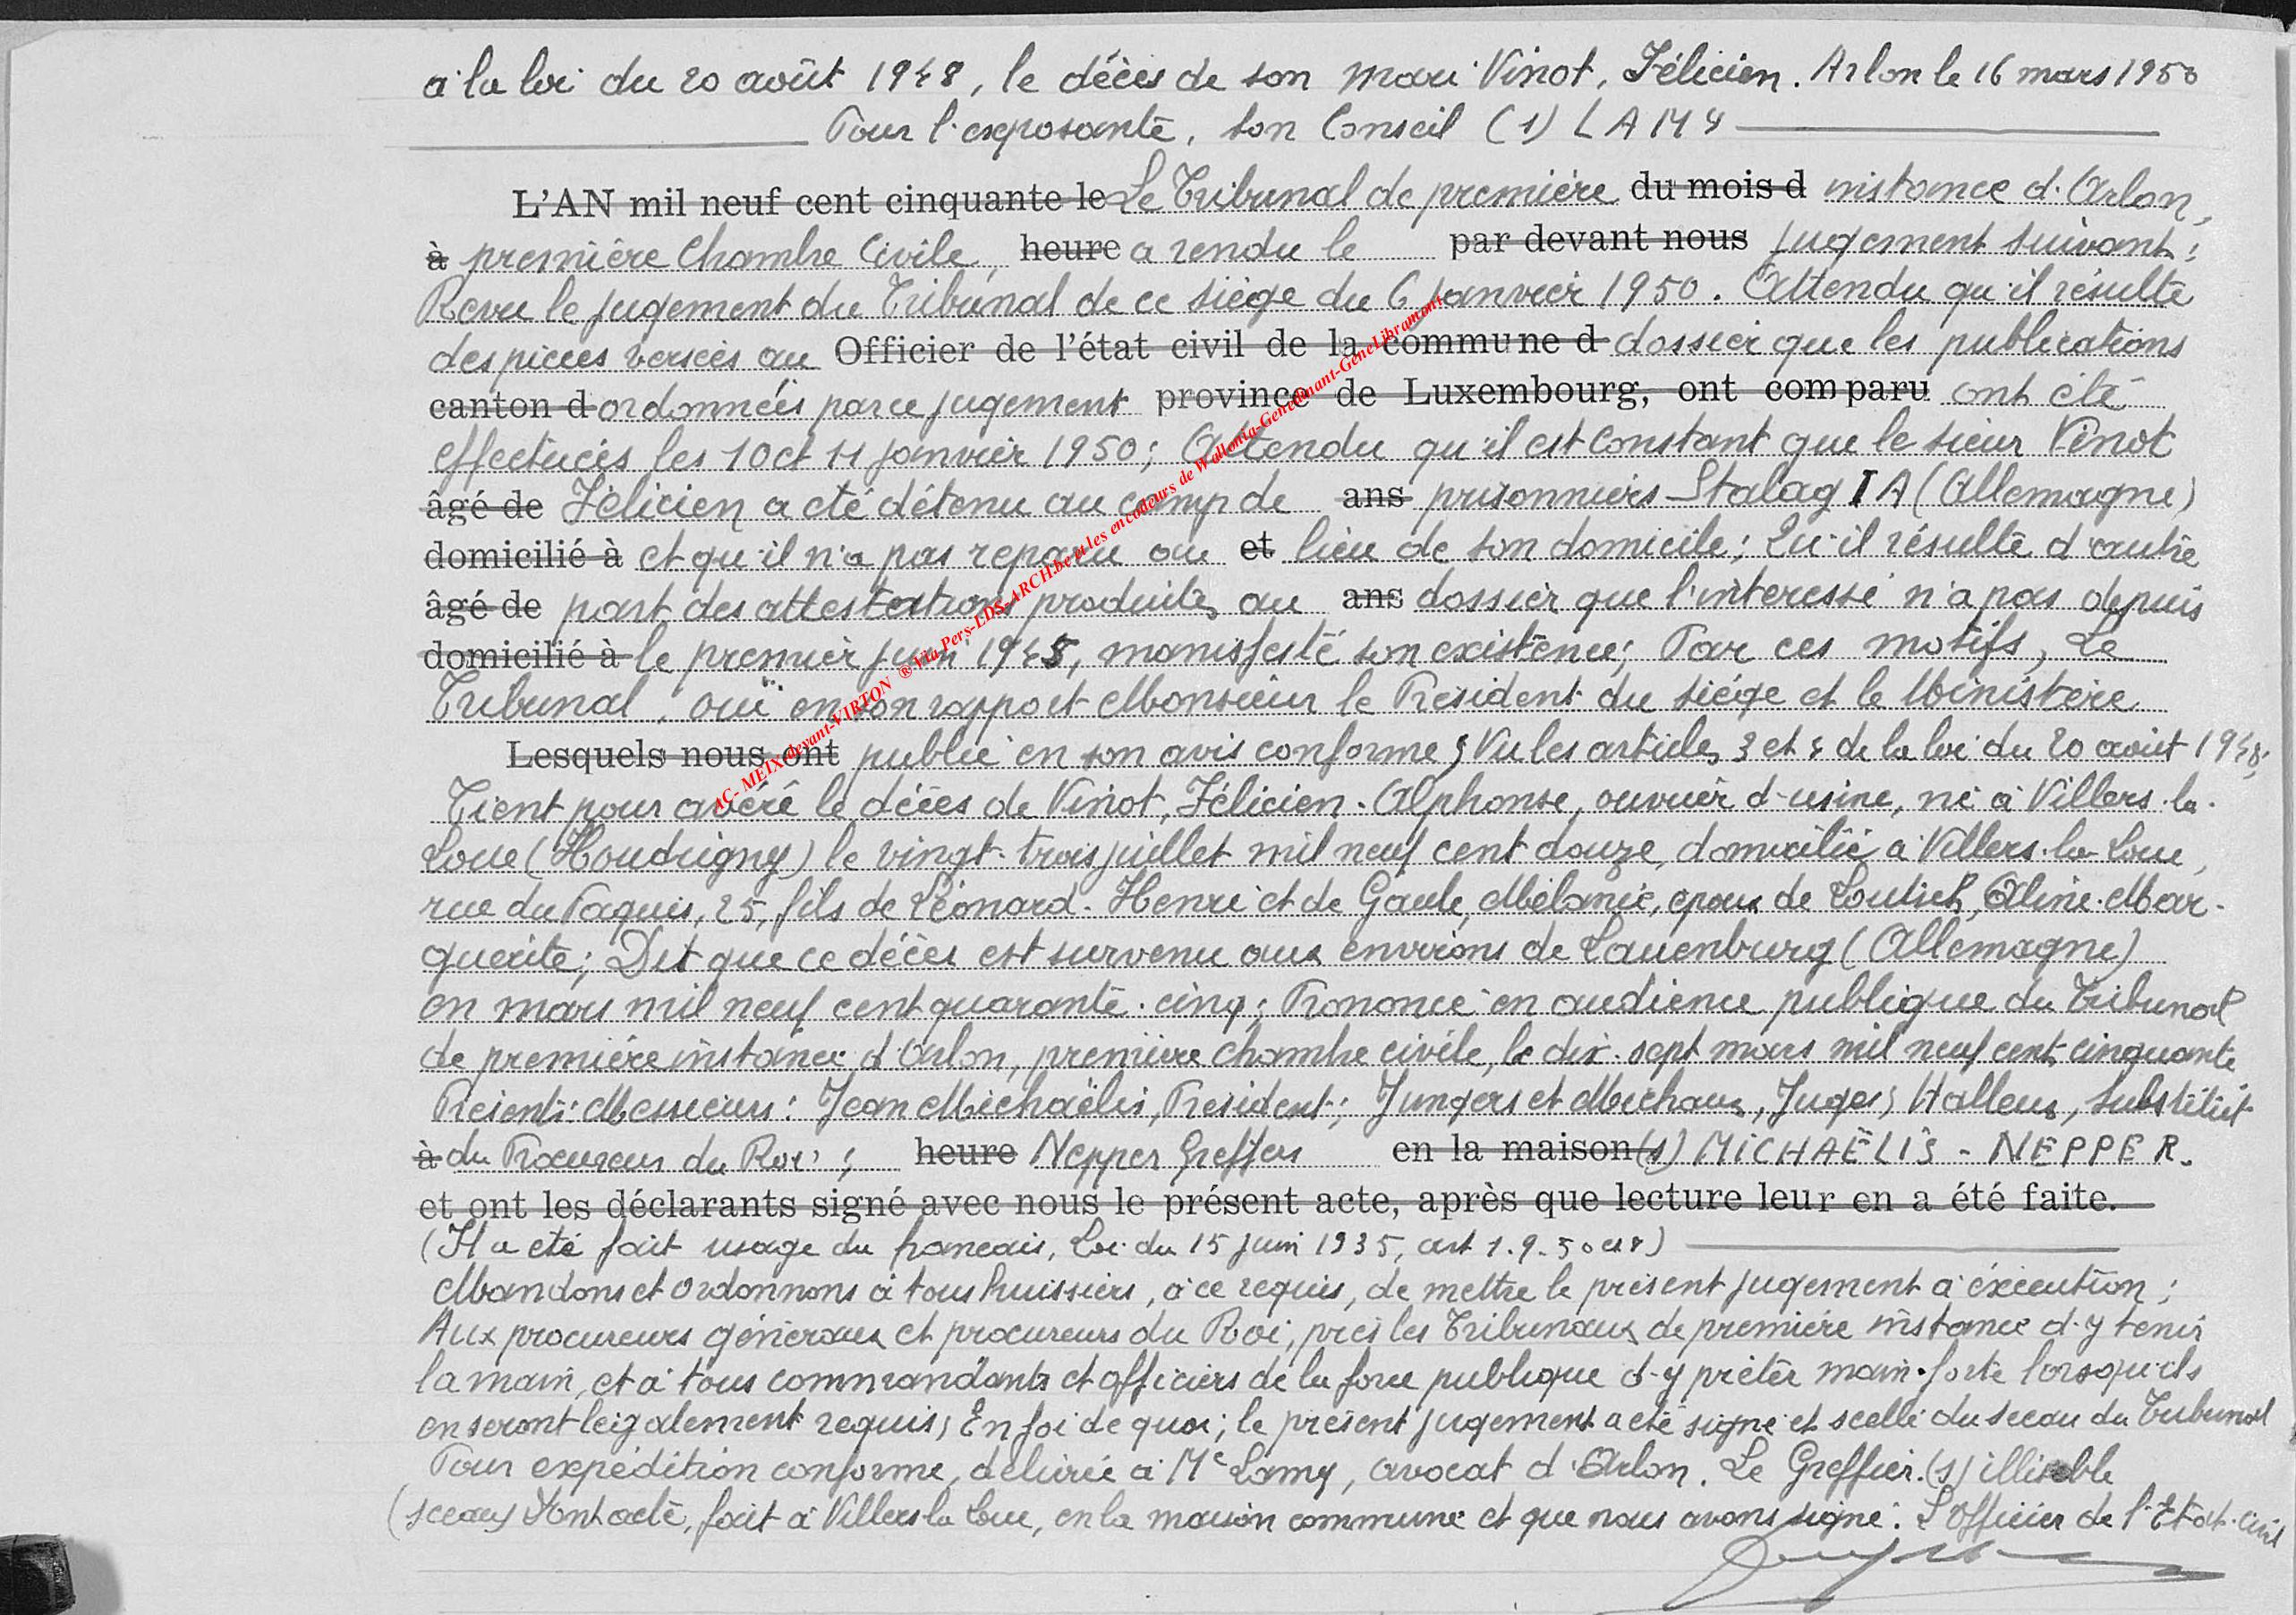 à la loi du 20 août 1948, le décès de son mari Vinot, Félicien. Arlon le 16 mars 1950
Pour l'exposante, son Conseil (s) LAMY
L'AN mil neuf cent cinquante le Le Tribunal de première du mois d instance d'Arlon,
à première Chambre Civile, heure a rendu le par devant nous jugement suivant:
Revu le jugement du Tribunal de ce siège du 6 janvier 1950. Attendu qu'il résulte
des pièces versées au Officier de l'état civil de la commune d dossier que les publications
canton d ordonnées par ce jugement province de Luxembourg, ont comparu ont été
effectuées les 10 et 11 janvier 1950; Attendu qu'il est constant que le sieur Vinot
âgé de Félicien a été détenu au camp de ans prisonniers Stalag I A (Allemagne)
domicilié à et qu'il n'a pas reparu au et lieu de son domicile; Qu'il résulte d'autre
âgé de part des attestations produites au ans dossier que l'intéressé n'a pas depuis
domicilié à le premier juin 1945, manifesté son existence; Par ces motifs, Le
Tribunal, ouï en son rapport Monsieur le Président du siège et le Ministère
Lesquels nous ont publié en son avis conforme; Vu les articles 3 et 4 de la loi du 20 août 1948;
Tient pour avéré le décès de Vinot, Félicien-Alphonse, ouvrier d'usine, né à Villers-la-
Loue (Houdrigny) le vingt-trois juillet mil neuf cent douze, domicilié à Villers-la-Loue,
rue du Paquis, 25, fils de Léonard-Henri et de Gaule, Mélanie, époux de Loutsch, Aline-Mar-
guerite; Dit que ce décès est survenu aux environs de Lauenburg (Allemagne)
en mars mil neuf cent quarante-cinq; Prononcé en audience publique du Tribunal
de première instance d'Arlon, première chambre civile, le dix-sept mars mil neuf cent cinquante
Présents: Messieurs: Jean Michaëlis, Président; Jungers et Michaux, Juges; Halleux, Substitut
à du Procureur du Roi; heure Nepper Greffier en la maison (s) MICHAËLIS - NEPPER.
et ont les déclarants signé avec nous le présent acte, après que lecture leur en a été faite.
(Il a été fait usage du français, Loi du 15 juin 1935, art 1.9.
Mandons et ordonnons à tous huissiers, à ce requis, de mettre le présent jugement à exécution;
Aux procureurs généraux et procureurs du Roi, près les Tribunaux de première instance d'y tenir
la main, et à tous commandants et officiers de la force publique d'y prêter main-forte lorsqu'ils
en seront légalement requis; En foi de quoi; le présent jugement a été signé et scellé du sceau du Tribunal
Pour expédition conforme, délivrée à Me Lamy, avocat d'Arlon. Le Greffier. (s) illisible
(sceau) Dont acte, fait à Villers-la-Loue, en la maison commune et que nous avons signé. L'Officier de l'Etat-Civil
AC- MEIX-devant-VIRTON ® Via Pers-LDS-ARCH.be et les encodeurs de Wallonia-Genedinant-GeneLibramont